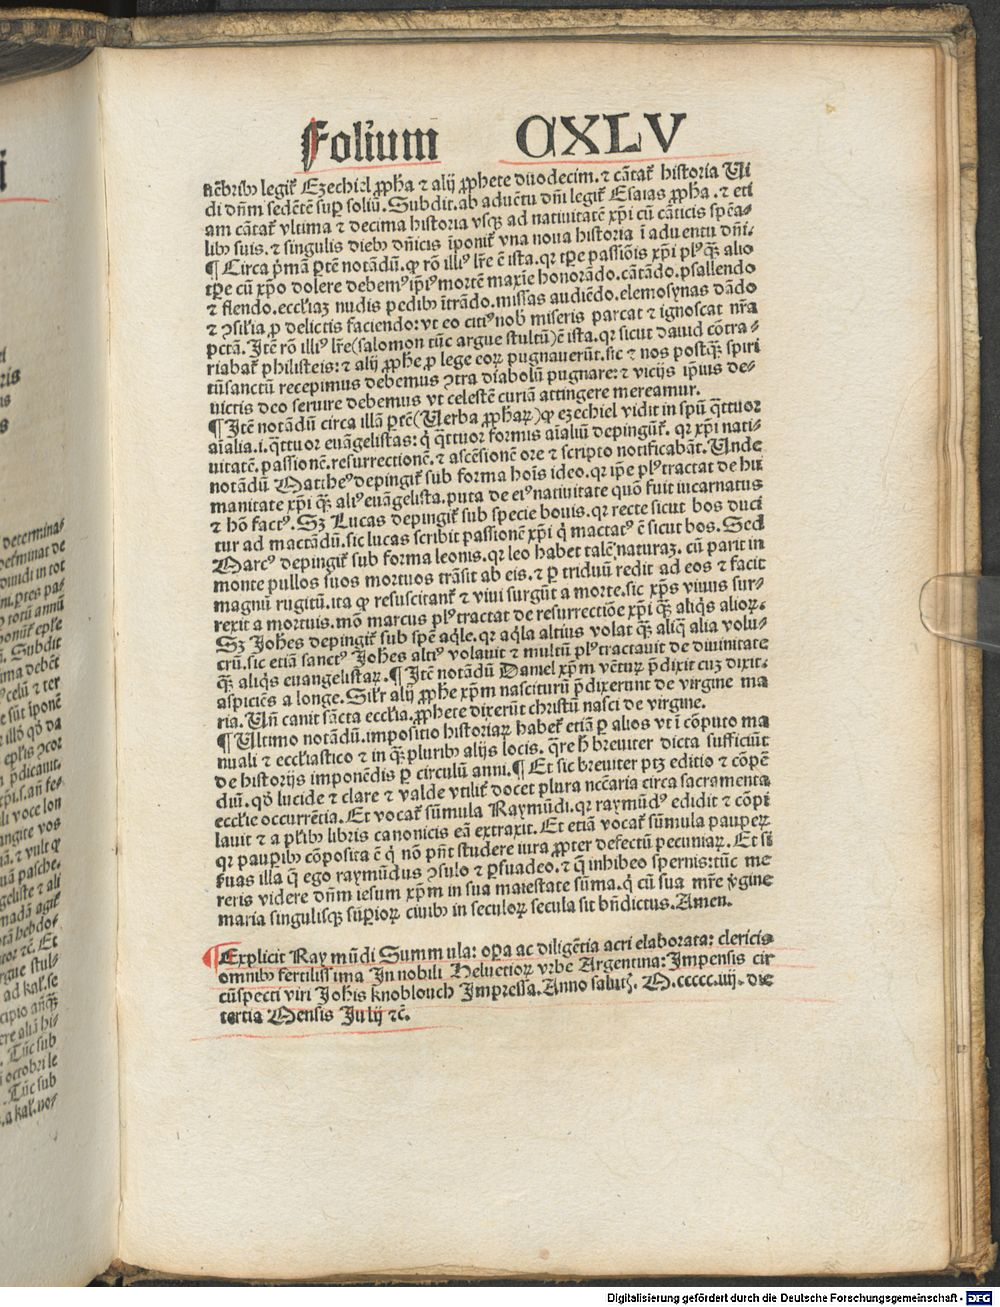 Foliū CXLV
nēbrib⁹ legit̄ Ezechiel ꝓpha ⁊ alij ꝓphete duodecim. ⁊ cātat̄ historia Ui
di dn̄m sedētē sup̱ soliū. Subdit. ab aduētu dn̄i legit̄ Esaias ꝓpha. ⁊ eti
am cātat̄ vltima ⁊ decima historia vsq̄ ad natiuitatē xp̄i cū cāticis spēa⸗
lib⁹ suis. ⁊ singulis dieb⁹ dn̄icis īponit̄ vna noua historia ī aduentu dn̄i.
¶ Circa p̄mā ꝑtē notādū. ꝙ rō illi⁹ lr̄e ē ista. qr tꝑe passiōis xp̄i pl⁹ q̄ꝫ alio
tꝑe cū xp̄o dolere debem⁹ ip̄i⁹ mortē maxīe honorādo. cātādo. psallendo
⁊ flendo. eccl̄iaꝫ nudis pedib⁹ ītrādo. missas audiēdo. elemosynas dādo
⁊ ↄsilia ꝓ delictis faciendo: vt eo citi⁹ nob̄ miseris parcat ⁊ ignoscat nr̄a
pctā. Itē rō illi⁹ lr̄e (salomon tūc argue stultū) ē ista. qr sicut dauid cōtra⸗
riabat̄ philisteis: ⁊ alij ꝓphe ꝓ lege eoꝝ pugnauerūt. sic ⁊ nos postq̄ꝫ spiri
tūsanctū recepimus debemus ↄtra diabolū pugnare: ⁊ vicijs ip̄ius de⸗
uictis deo seruire debemus vt celestē curiā attingere mereamur.
¶ Itē notādū circa illā ꝑtē (Uerba ꝓphaꝝ) ꝙ ezechiel vidit in spū q̄ttuor
aīalia. i. q̄ttuor euāgelistas: q̇ q̄ttuor formis aīaliū depingūt̄. qr xp̄i nati⸗
uitatē. passionē. resurrectionē. ⁊ ascēsionē ore ⁊ scripto notificabāt. Unde
notādū Mathe⁹ depingit̄ sub forma hoīs ideo. qr ip̄e pl⁹ tractat de hu
manitate xp̄i q̄ꝫ ali⁹ euāgelista. puta de ei⁹ natiuitate quō fuit incarnatus
⁊ hō fact⁹. Sꝫ Lucas depingit̄ sub specie bouis. qr recte sicut bos duci
tur ad mactādū. sic lucas scribit passionē xp̄i q̇ mactat⁹ ē sicut bos. Sed
Marc⁹ depingit̄ sub forma leonis. qr leo habet talē naturaꝫ. cū parit in
monte pullos suos mortuos trāsit ab eis. ⁊ ꝑ triduū redit ad eos ⁊ facit
magnū rugitū. ita ꝙ resuscitant̄ ⁊ viui surgūt a morte. sic xp̄s viuus sur⸗
rexit a mortuis. mō marcus pl⁹ tractat de resurrectiōe xp̄i q̄ꝫ aliq̄s alioꝝ.
Sꝫ Joh̄es depingit̄ sub spē aq̄le. qr aq̄la altius volat q̄ꝫ aliq̄ alia volu⸗
crū. sic etiā sanct⁹ Joh̄es alti⁹ volauit ⁊ multū pl⁹ tractauit de diuinitate
q̄ꝫ aliq̄s euangelistaꝝ. ¶ Itē notādū Daniel xp̄m vētuꝝ p̄dixit cuꝫ dixit.
aspiciēs a longe. Silr̄ alij ꝓphe xp̄m nasciturū p̄dixerunt de virgine ma
ria. Un̄ canit sācta eccl̄ia. ꝓphete dixerūt christū nasci de virgine.
¶ Ultimo notādū. impositio historiaꝝ habet̄ etiā ꝑ alios vt ī cōputo ma
nuali ⁊ eccl̄iastico ⁊ in q̄ꝫ plurib⁹ alijs locis. q̄re h̄ breuiter dicta sufficiūt
de historijs imponēdis ꝑ circulū anni. ¶ Et sic breuiter ptꝫ editio ⁊ cōpē
diū. qd̄ lucide ⁊ clare ⁊ valde vtilit̄ docet plura nccāria circa sacramenta
eccl̄ie occurrētia. Et vocat̄ sūmula Raymūdi. qr raymūd⁹ edidit ⁊ cōpi
lauit ⁊ a plib⁹ libris canonicis eā extraxit. Et etiā vocat̄ sūmula pauperꝝ
qr pauꝑib⁹ cōposita ē q̇ nō pn̄t studere iura ꝓpter defectū pecuniaꝝ. Et si
illa q̄ ego raymūdus ↄsulo ⁊ ꝑsuadeo. ⁊ q̄ inhibeo spernis: tūc me
reris videre dn̄m iesum xp̄m in sua maiestate sūma. q̇ cū sua mr̄e v̄gine
maria singulisq̄ suꝑioꝝ ciuib⁹ in seculoꝝ secula sit bn̄dictus. Amen.
¶ Explicit Raymūdi Summula: oꝑa ac diligētia acri elaborata: clericis
omnib⁹ fertilissima In nobili Heluetioꝝ vrbe Argentina: Impensis cir
cūspecti viri Joh̄is knoblouch Impressa. Anno saluṫ. M.ccccc.iiij. die
tertia Mensis Julij ⁊c̄.
Digitalisierung gefördert durch die Deutsche Forschungsgemeinschaft - DFG